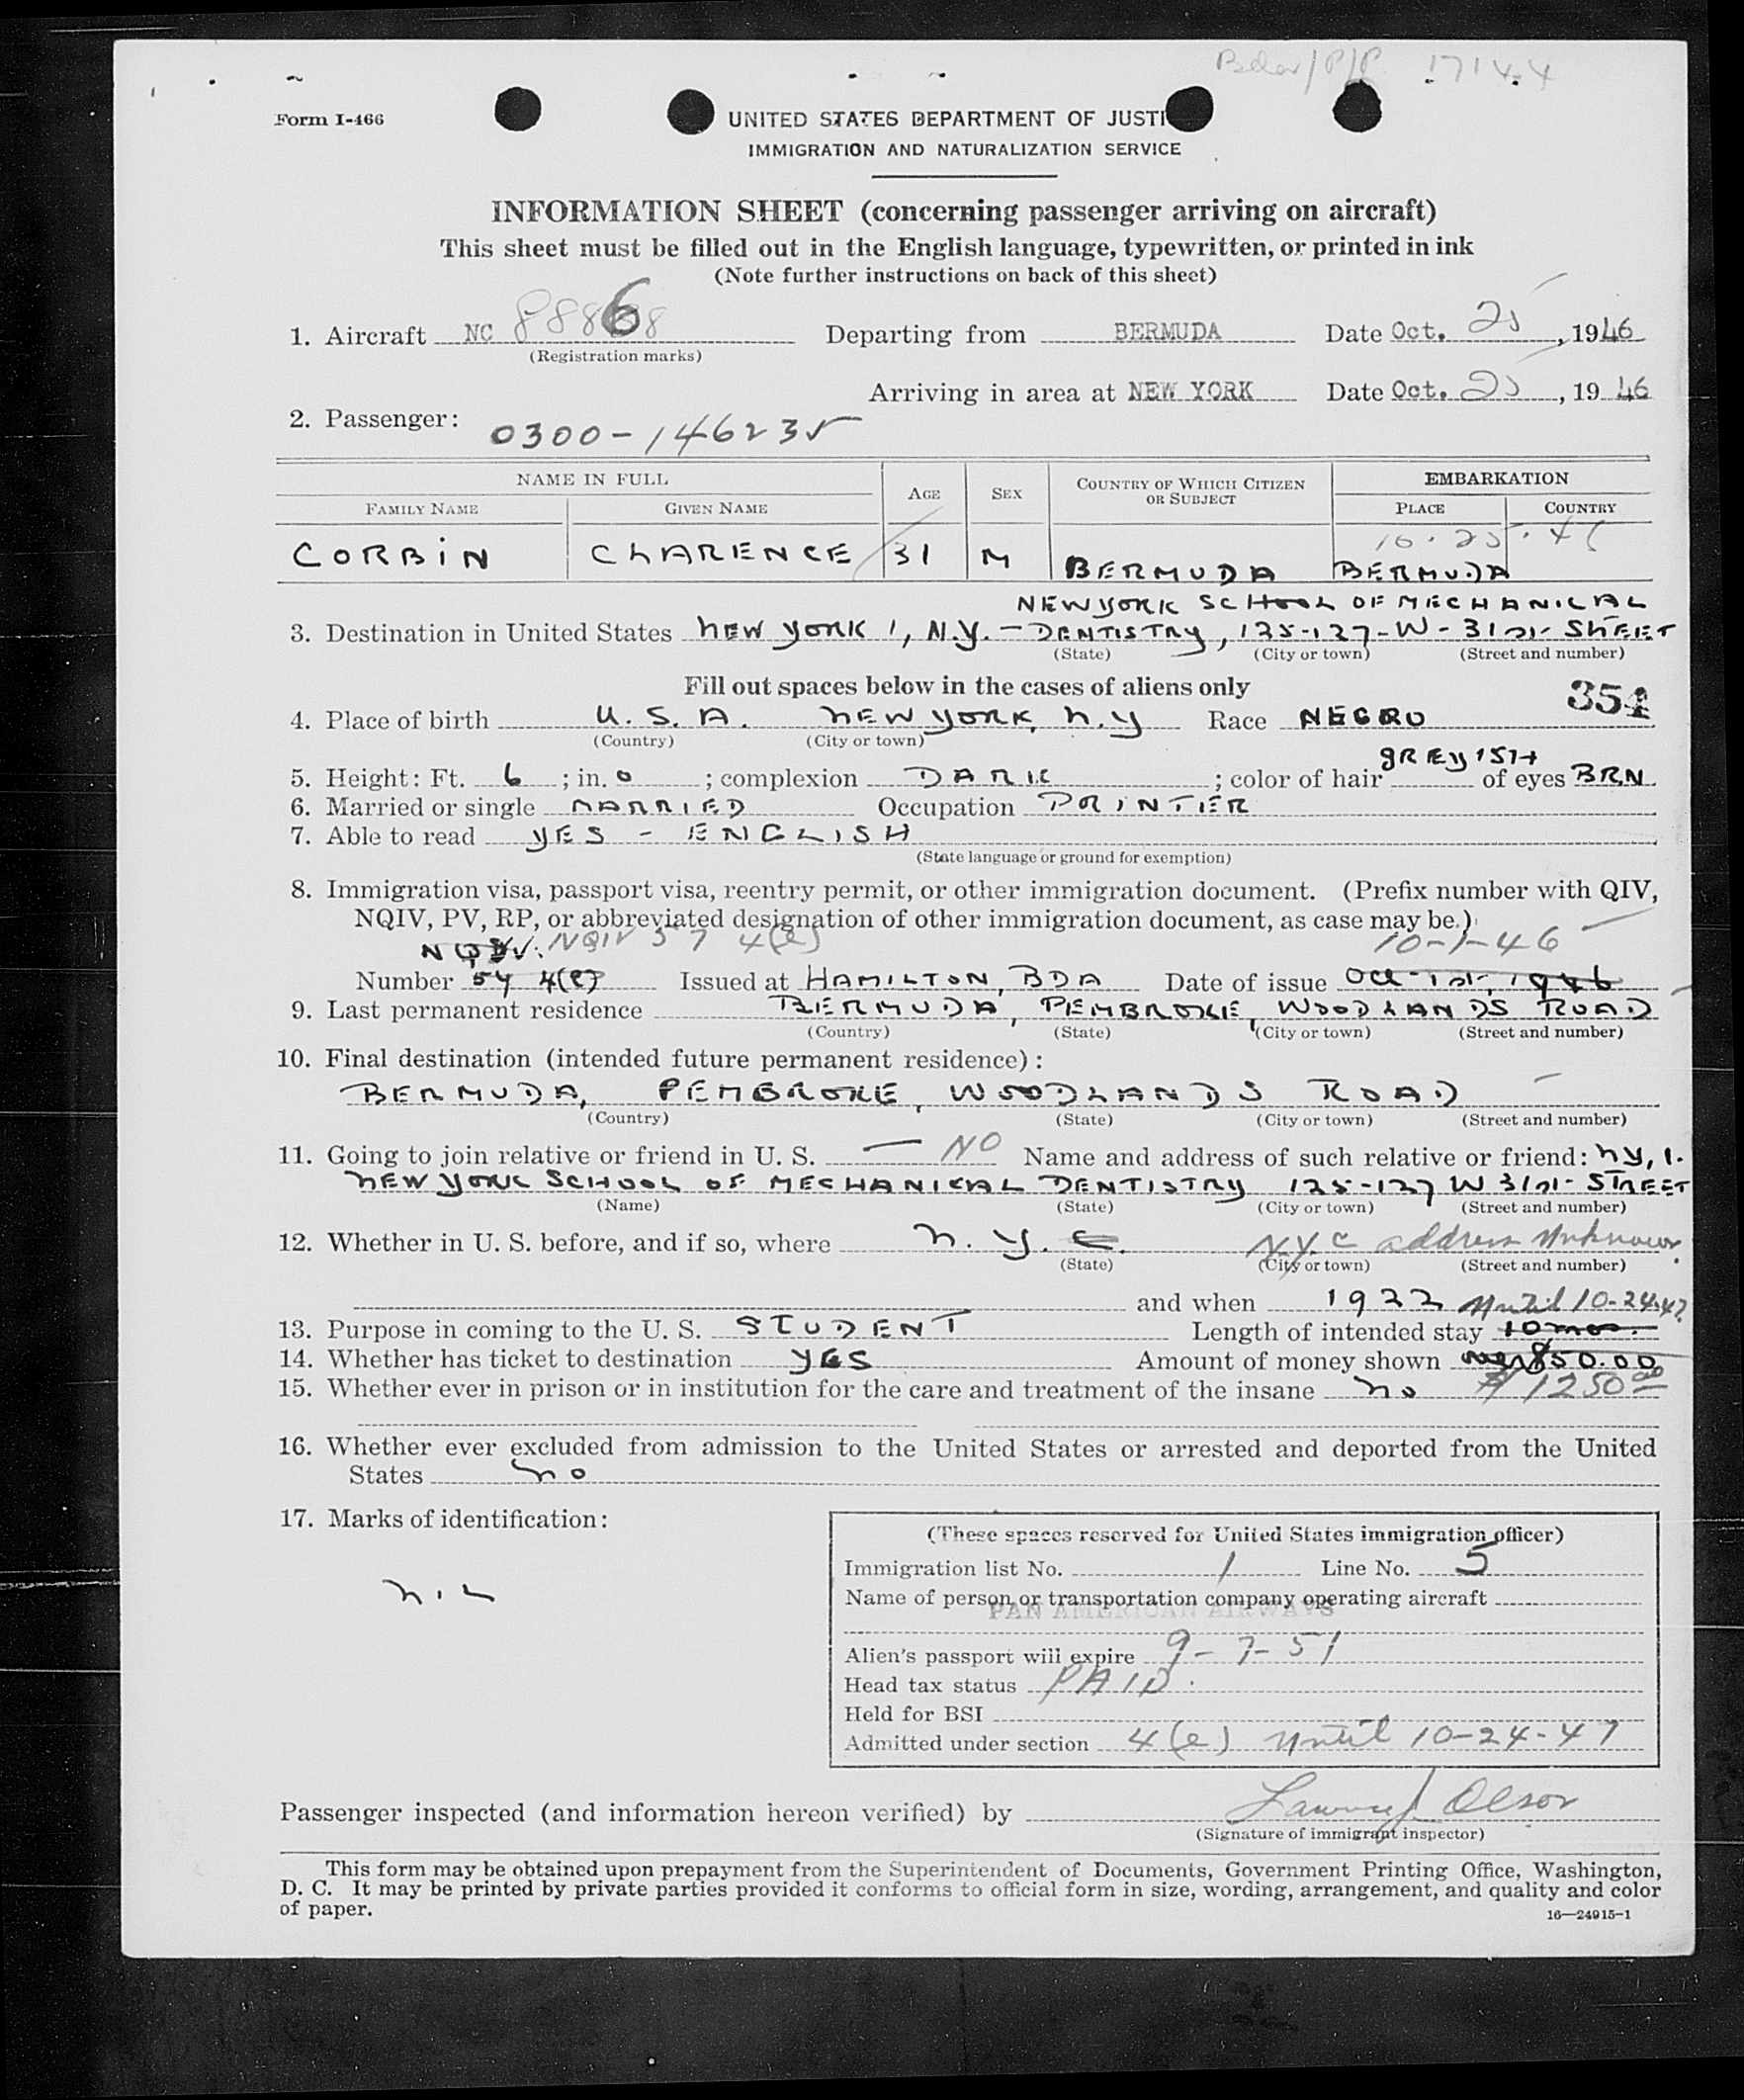 17144
Form I-466
UNITED STATES DEPARTMENT OF JUSTI
IMMIGRATION AND NATURALIZATION SERVICE
INFORMATION SHEET (concerning passenger arriving on aircraft)
This sheet must be filled out in the English language, typewritten, or printed in ink
(Note further instructions on back of this sheet)
1. Aircraft NC Departing from BERMUDA Date Oct. 25, 1946
(Registration marks)
Arriving in area at NEW YORK Date Oct. 25, 1946
2. Passenger: 0300-146235
NAME IN FULL AGE SEX COUNTRY OF WHICH CITIZEN OR SUBJECT EMBARKATION
FAMILY NAME GIVEN NAME PLACE COUNTRY
10.25.46
CORBIN CLARENCE 31 M BERMUDA BERMUDA
NEW YORK SCHOOL OF MECHANICAL
3. Destination in United States NEW YORK 1, N.Y. - DENTISTRY, 125-127-W-31st STREET
(State) (City or town) (Street and number)
Fill out spaces below in the cases of aliens only
354
4. Place of birth U.S.A. NEW YORK, N.Y Race NEGRO
(Country) (City or town)
5. Height: Ft. 6; in. 0; complexion DARK; color of hair GREYISH of eyes BRN
6. Married or single MARRIED Occupation PRINTER
7. Able to read YES - ENGLISH
(State language or ground for exemption)
8. Immigration visa, passport visa, reentry permit, or other immigration document. (Prefix number with QIV,
NQIV, PV, RP, or abbreviated designation of other immigration document, as case may be.)
NQIV. NQIV 57 4(e) 10-1-46
Number 57 4(e) Issued at HAMILTON, BDA Date of issue Oct 1st, 1946
9. Last permanent residence BERMUDA, PEMBROKE, WOODLANDS ROAD
(Country) (State) (City or town) (Street and number)
10. Final destination (intended future permanent residence):
BERMUDA, PEMBROKE, WOODLANDS ROAD
(Country) (State) (City or town) (Street and number)
11. Going to join relative or friend in U. S. — NO Name and address of such relative or friend: NY, 1.
NEW YORK SCHOOL OF MECHANICAL DENTISTRY 125-127 W 31st STREET
(Name) (State) (City or town) (Street and number)
12. Whether in U. S. before, and if so, where N.Y.C. N.Y.C address Unknown
(State) (City or town) (Street and number)
and when 1922 Until 10-24-47
13. Purpose in coming to the U. S. STUDENT Length of intended stay 10 mos.
14. Whether has ticket to destination YES Amount of money shown $50.00
15. Whether ever in prison or in institution for the care and treatment of the insane NO $1250.00
16. Whether ever excluded from admission to the United States or arrested and deported from the United
States NO
17. Marks of identification:
NIL
(These spaces reserved for United States immigration officer)
Immigration list No. 1 Line No. 5
Name of person or transportation company operating aircraft
PAN AMERICAN AIRWAYS
Alien's passport will expire 9-7-51
Head tax status PAID.
Held for BSI
Admitted under section 4(e) Until 10-24-47
Passenger inspected (and information hereon verified) by Olson
(Signature of immigrant inspector)
This form may be obtained upon prepayment from the Superintendent of Documents, Government Printing Office, Washington,
D. C. It may be printed by private parties provided it conforms to official form in size, wording, arrangement, and quality and color
of paper.
16—24915-1